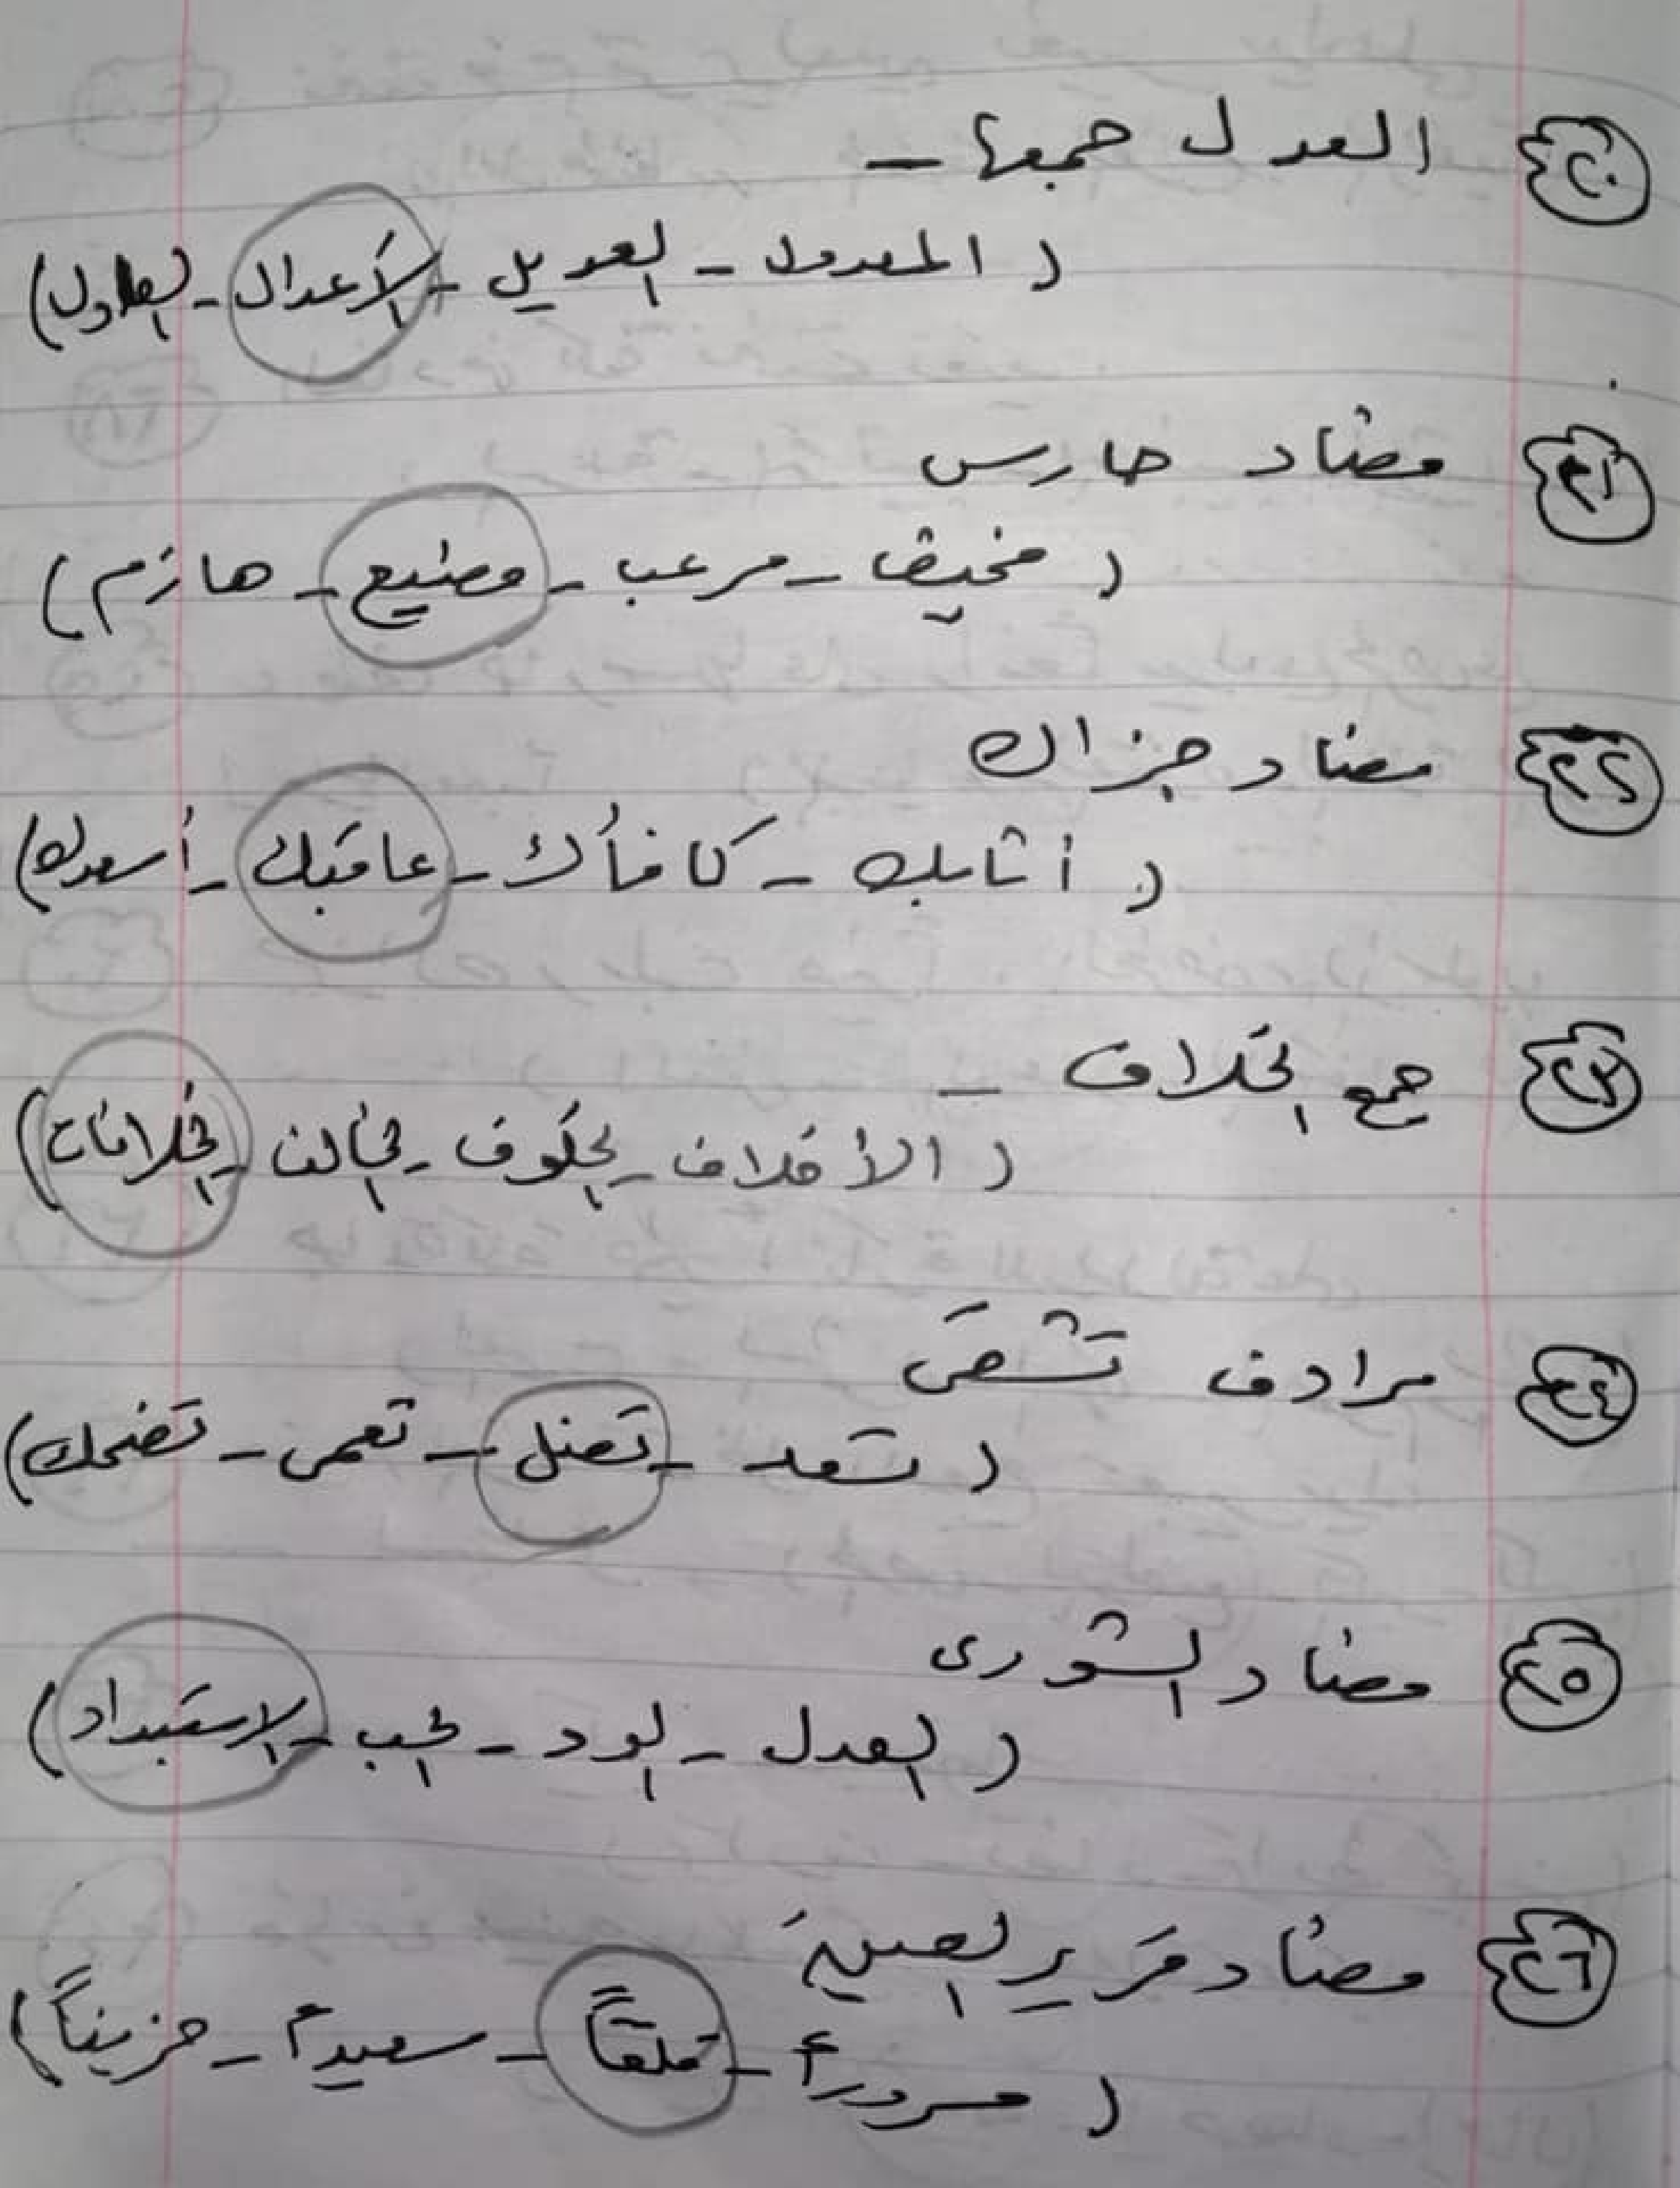 ٢٠ العدل جمعها -
( المعدول - العديل - الأعدال - )
٢١ مضاد حارس
( مخيف - مرعب - مضيع - هازم )
٢٢ مضاد جزاك
( أثابك - كافأك - عاقبك - أسعدك )
٢٣ جمع الخلاف -
( الأخلاف - الخلوف - الخالف - الخلافات )
٢٤ مرادف تشقى
( تسعد - تضل - تعمى - تضحك )
٢٥ مضاد الشورى
( العدل - الود - الحب - الاستبداد )
٢٦ مضاد قرير العين
( مسروراً - قلقاً - سعيداً - حزيناً )